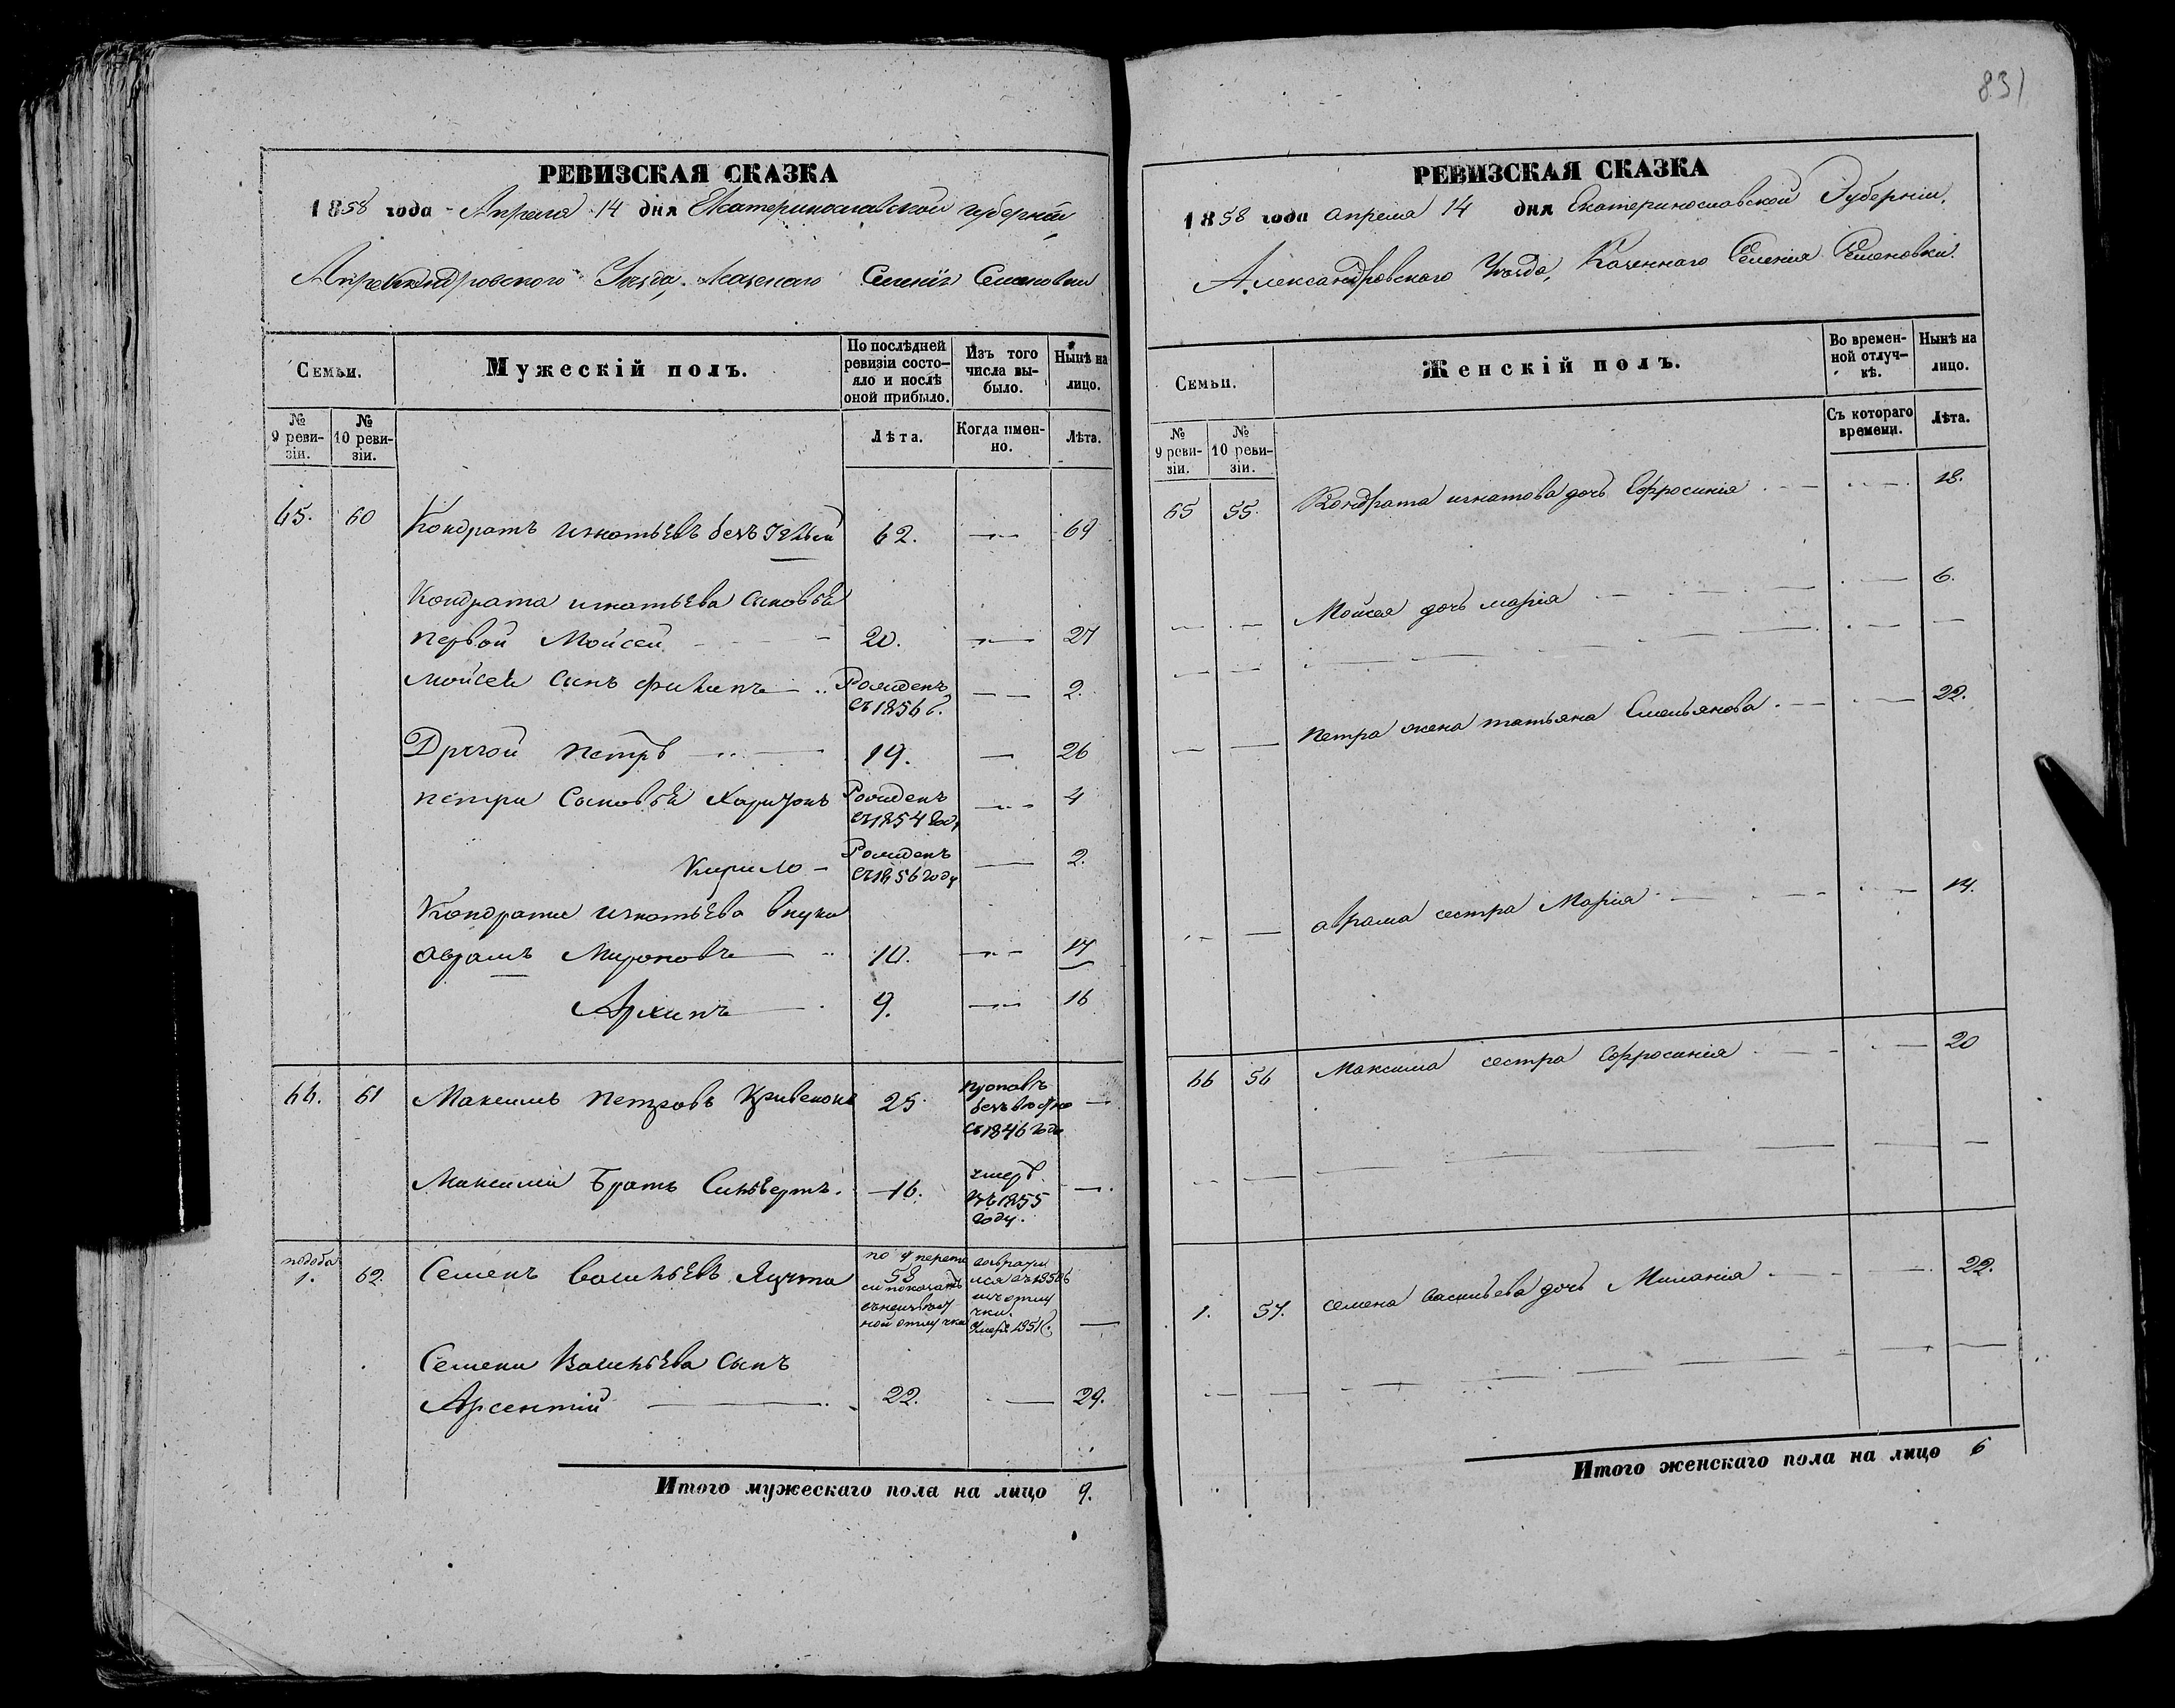 831
РЕВИЗСКАЯ СКАЗКА
1858 года Апреля 14 дня Екатеринославской губернии
Александровского Уезда, Казенаго Селенія Семеновки
Семьи.
Мужескій полъ.
По послѣдней ревизіи состо-
яло и послѣ
оной прибыло.
Изъ того
числа вы-
было.
Нынѣ на
лицо.
№
9 реви-
зіи.
№
10 реви-
зіи.
Лѣта.
Когда имен-
но.
Лѣта.
65. 60 Кондратъ игнатьевъ 62. 69
Кондрата игнатьева сыновья
первой Мойсей 20. 27
Мойсея сынъ филипъ Рожденъ 2.
съ 1856 г.
Другой петръ 19. 26
петра сыновья Харитонъ Рожденъ 4
съ 1854 году
Кирило Рожденъ 2.
съ 1856 году
Кондрата игнатьева внуки
аврамъ Мироновъ 10. 17
Архипъ 9. 16
66. 61 Максимъ петровъ Кривенокъ 25. пропавъ
безъ
съ 1846 года
Максима братъ Сильвертъ. 16. умер.
въ 1855
году.
1. 62. Семенъ васильевъ Яцута по 9
58
1851
Семена васильева сынъ
Арсентій 22. 29.
Итого мужескаго пола на лицо 9.
РЕВИЗСКАЯ СКАЗКА
1858 года апреля 14 дня Екатеринославской Губерніи,
Александровскаго Уезда, Казеннаго Селенія Семеновки.
Семьи.
Женскій полъ.
Во времен-
ной отлуч-
кѣ.
Нынѣ на
лицо.
№
9 реви-
зіи.
№
10 реви-
зіи.
Съ котораго
времени.
Лѣта.
65 55. Кондрата игнатова дочь Ефросинія 18.
Мойсея дочь марія 6.
петра жена татьяна Емельянова 22.
аврама сестра Марія 14.
66 56 Максима сестра Ефросинія 20
1. 57. семена васильева дочь Миланія 22.
Итого женскаго пола на лицо 6